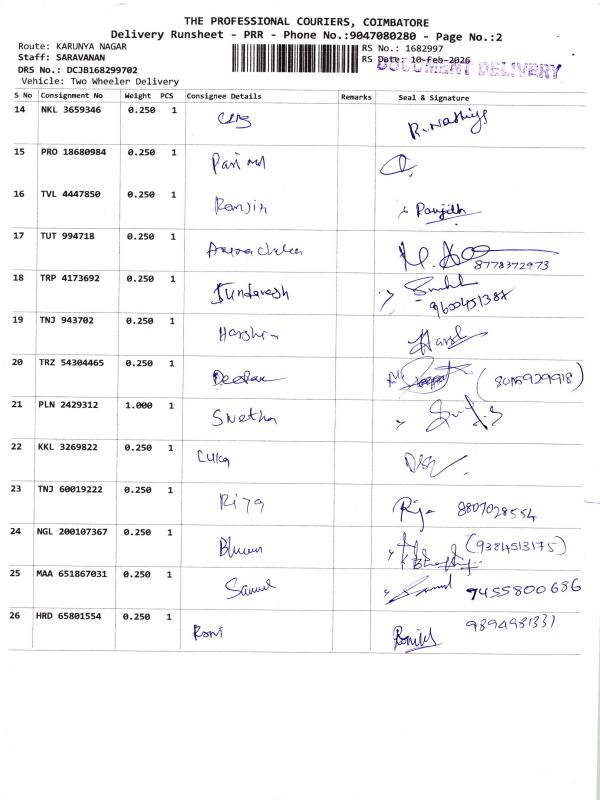 THE PROFESSIONAL COURIERS, COIMBATORE
Delivery Runsheet - PRR - Phone No.:9047080280 - Page No.:2
Route: KARUNYA NAGAR
RS No.: 1682997
Staff: SARAVANAN
RS Date: 10-Feb-2026
DOCUMENT DELIVERY
DRS No.: DCJB168299702
Vehicle: Two Wheeler Delivery
S No Consignment No Weight PCS Consignee Details Remarks Seal & Signature
14 NKL 3659346 0.250 1 R. Nathiya
15 PRO 18680984 0.250 1
16 TVL 4447850 0.250 1 Ranjith Ranjith
17 TUT 994718 0.250 1 8778372973
18 TRP 4173692 0.250 1 Sundaresh
19 TNJ 943702 0.250 1 Harshin Harsh
20 TRZ 54304465 0.250 1 Deepak
21 PLN 2429312 1.000 1 Swetha
22 KKL 3269822 0.250 1 Luka
23 TNJ 60019222 0.250 1 Riya Riya 8807028554
24 NGL 200107367 0.250 1 (9384513175)
25 MAA 651867031 0.250 1 Samuel Samuel 9455800686
26 HRD 65801554 0.250 1 Roni 9894981331